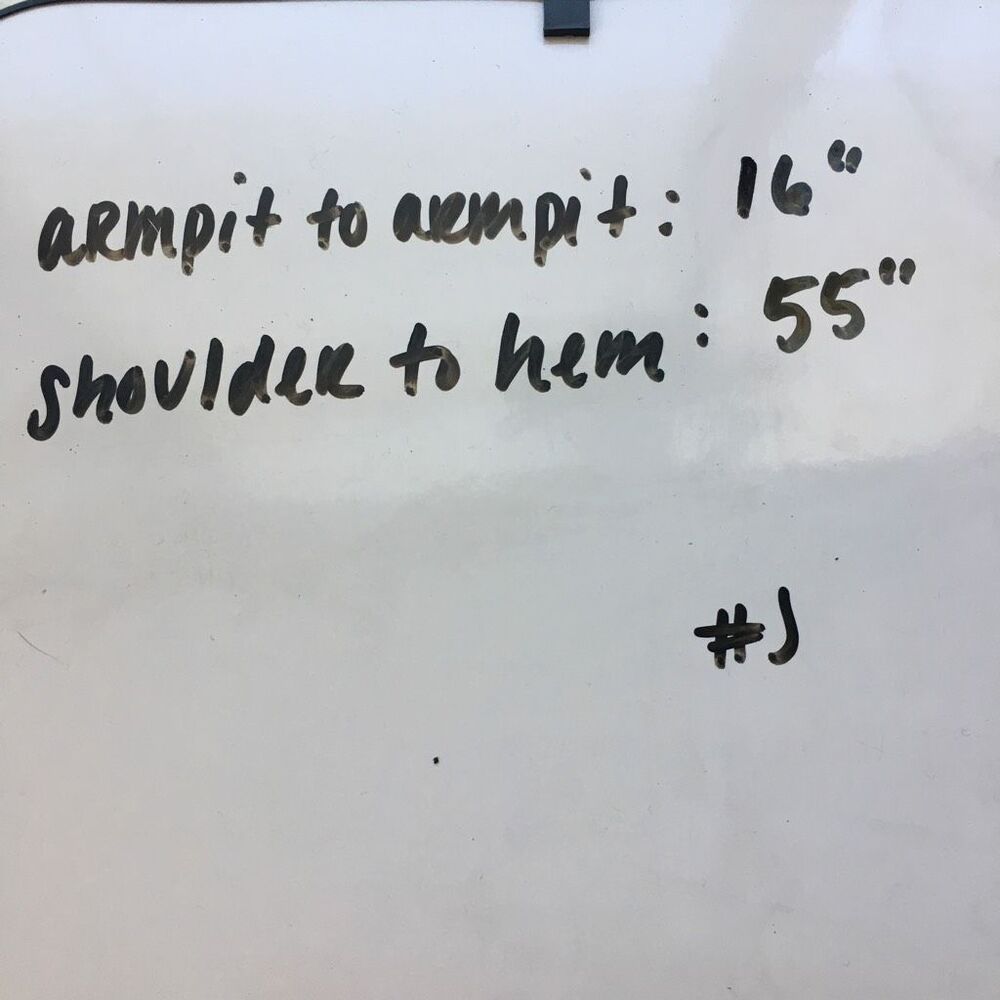 armpit to armpit: 16"
shoulder to hem: 55"
#J